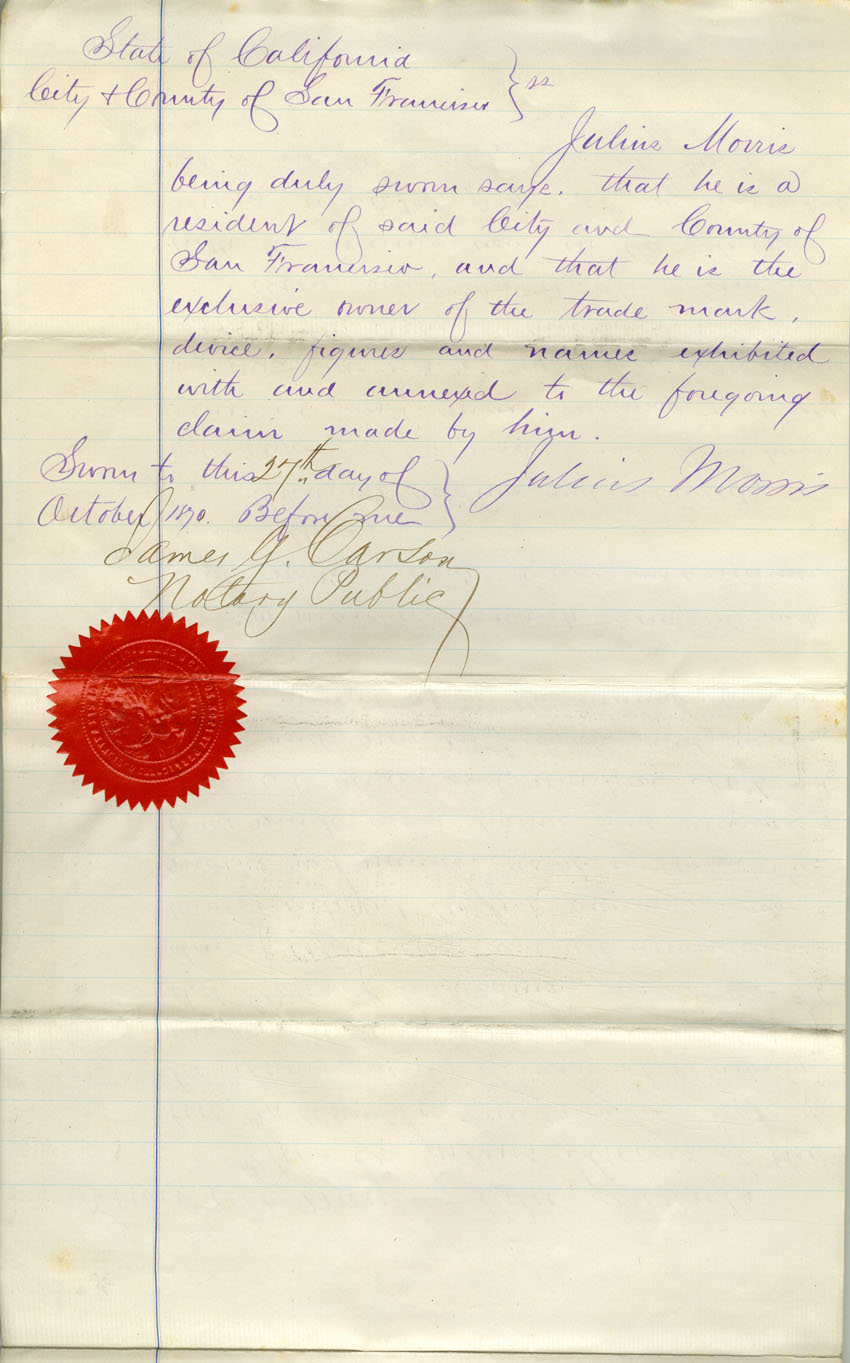 State of California
City & County of San Francisco } ss
Julius Morris
being duly sworn says. that he is a
resident of said City and County of
San Francisco, and that he is the
exclusive owner of the trade mark,
device, figures and names exhibited
with and annexed to the foregoing
claim made by him.
Sworn to this 27th day of } Julius Morris
October 1870. Before me
James G. Carson
Notary Public